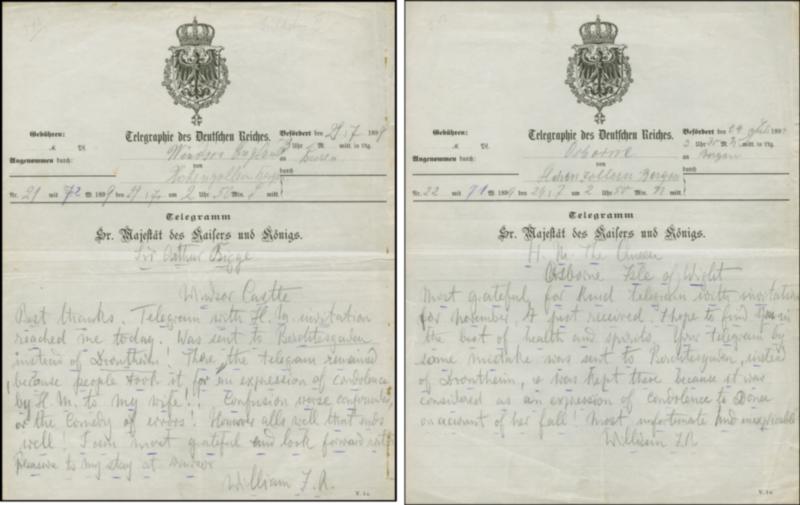 Telegraphie des Deutschen Reiches.
Gebühren:
M. Pf.
Angenommen durch:
Befördert den 29/7 189
Windsor England
von
Hohenzollern
an
durch
Nr. 21 mit 72 W. 1899 den 29/7 um 2 Uhr 50 Min. mitt.
Telegramm
Sr. Majestät des Kaisers und Königs.
Sir Arthur Bigge
Windsor Castle
Best thanks. Telegram with H. M. invitation
reached me today. Was sent to Berchtesgaden
instead of Drontheim! There the telegram remained
because people took it for an expression of condolence
by H. M. to my wife!! Confusion worse confounded,
or the Comedy of errors! However alls well that ends
well! I am most grateful and look forward with
pleasure to my stay at Windsor
William I. R.
V. 1a
Telegraphie des Deutschen Reiches.
Gebühren:
M. Pf.
Angenommen durch:
Befördert den 29 Juli 189
Osborne
von
Hohenzollern Bergen
an Bergen
durch
Nr. 22 mit 71 W. 1899 den 29/7 um 2 Uhr 50 Min. mitt.
Telegramm
Sr. Majestät des Kaisers und Königs.
H. M. The Queen
Osborne Isle of Wight
Most grateful for kind telegram with invitation
for November, I just received. I hope to find you in
the best of health and spirits. Your telegram by
some mistake was sent to Berchtesgaden, instead
of Drontheim, & was kept there because it was
considered as an expression of condolence to Dona
on account of her fall! Most unfortunate and inexplicable
William I. R.
V. 1a